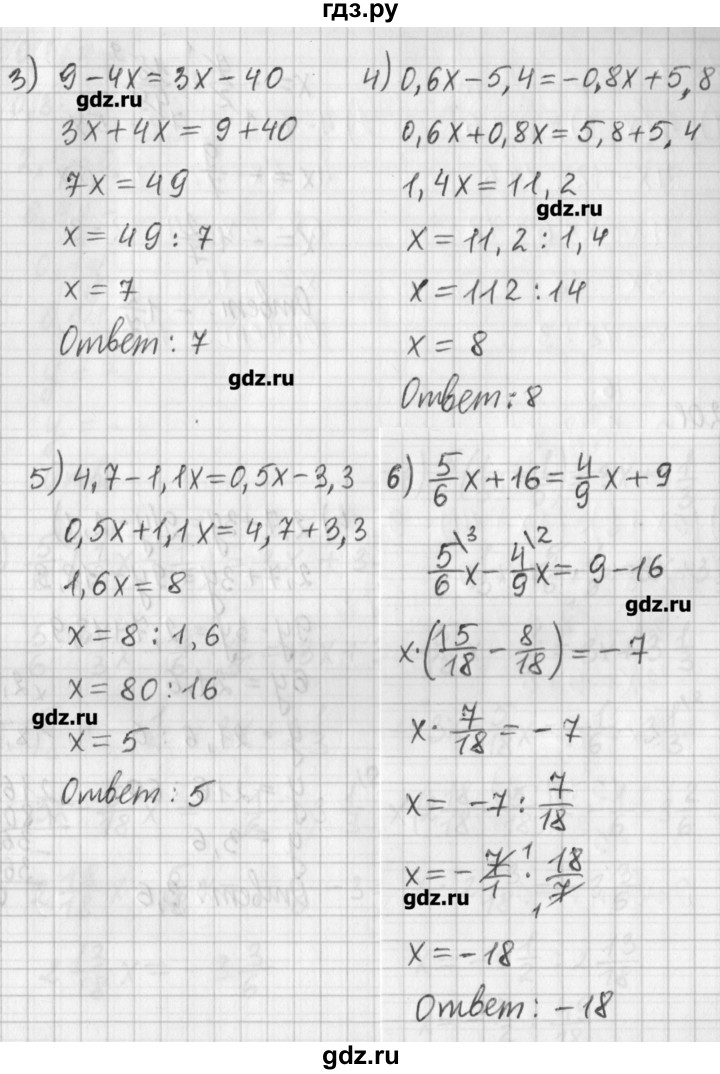 гдз.ру
3) 9 - 4x = 3x - 40
gdz.ru
3x + 4x = 9 + 40
7x = 49
x = 49 : 7
x = 7
Ответ: 7
gdz.ru
4) 0,6x - 5,4 = -0,8x + 5,8
0,6x + 0,8x = 5,8 + 5,4
1,4x = 11,2
gdz.ru
x = 11,2 : 1,4
x = 112 : 14
x = 8
Ответ: 8
5) 4,7 - 1,1x = 0,5x - 3,3
0,5x + 1,1x = 4,7 + 3,3
1,6x = 8
x = 8 : 1,6
x = 80 : 16
gdz.ru
x = 5
Ответ: 5
6) 5/6 x + 16 = 4/9 x + 9
5/6 \3 x - 4/9 \2 x = 9 - 16
gdz.ru
x · (15/18 - 8/18) = -7
x · 7/18 = -7
x = -7 : 7/18
x = - 7/1 1 · 18/7 1
gdz.ru
x = -18
Ответ: -18
gdz.ru